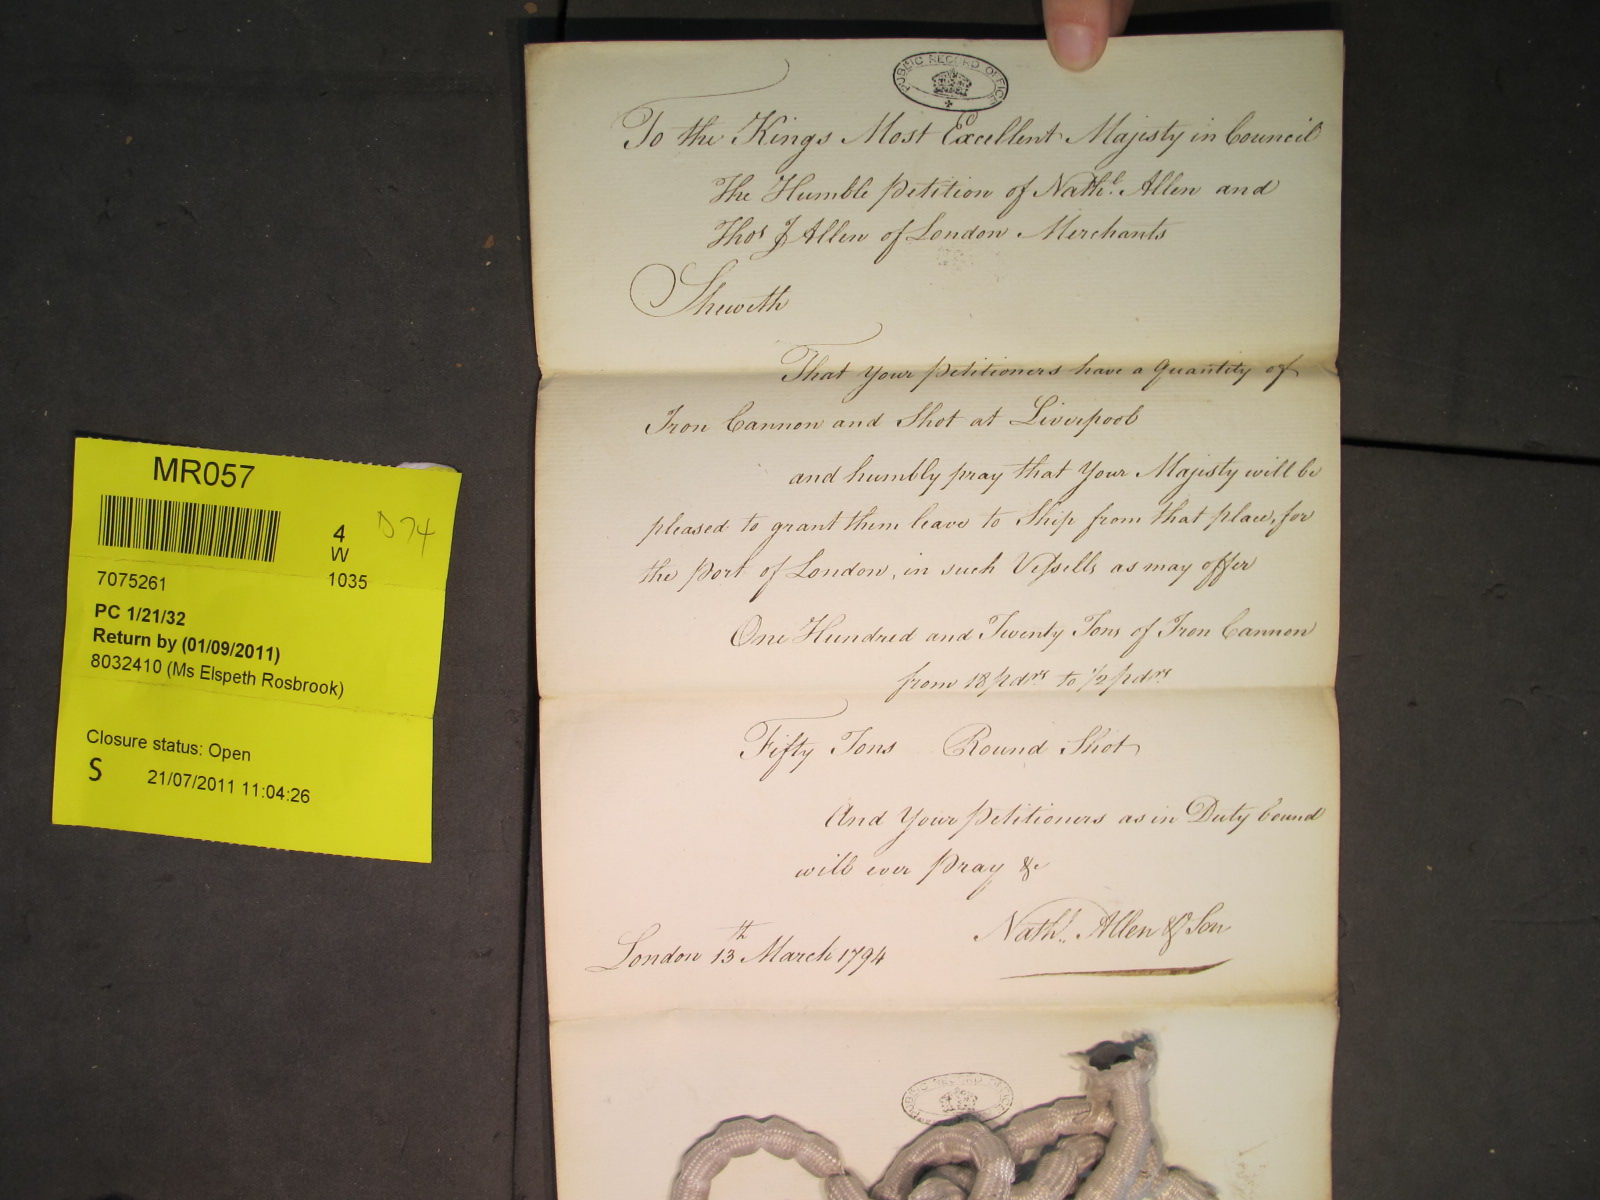 PUBLIC RECORD OFFICE
To the Kings Most Excellent Majesty in Council
The Humble Petition of Nathl. Allen and
Thos J Allen of London Merchants
Sheweth
That Your Petitioners have a Quantity of
Iron Cannon and Shot at Liverpool
and humbly pray that Your Majesty will be
pleased to grant them leave to Ship from that place, for
the Port of London, in such Vessells as may offer
One Hundred and Twenty Tons of Iron Cannon
from 18 pdrs to 1/2 pdrs
Fifty Tons Round Shot
And Your Petitioners as in Duty bound
will ever Pray &c
Nathl. Allen & Son
London 13th March 1794
PUBLIC RECORD OFFICE
MR057
4 D74
W
7075261 1035
PC 1/21/32
Return by (01/09/2011)
8032410 (Ms Elspeth Rosbrook)
Closure status: Open
S 21/07/2011 11:04:26